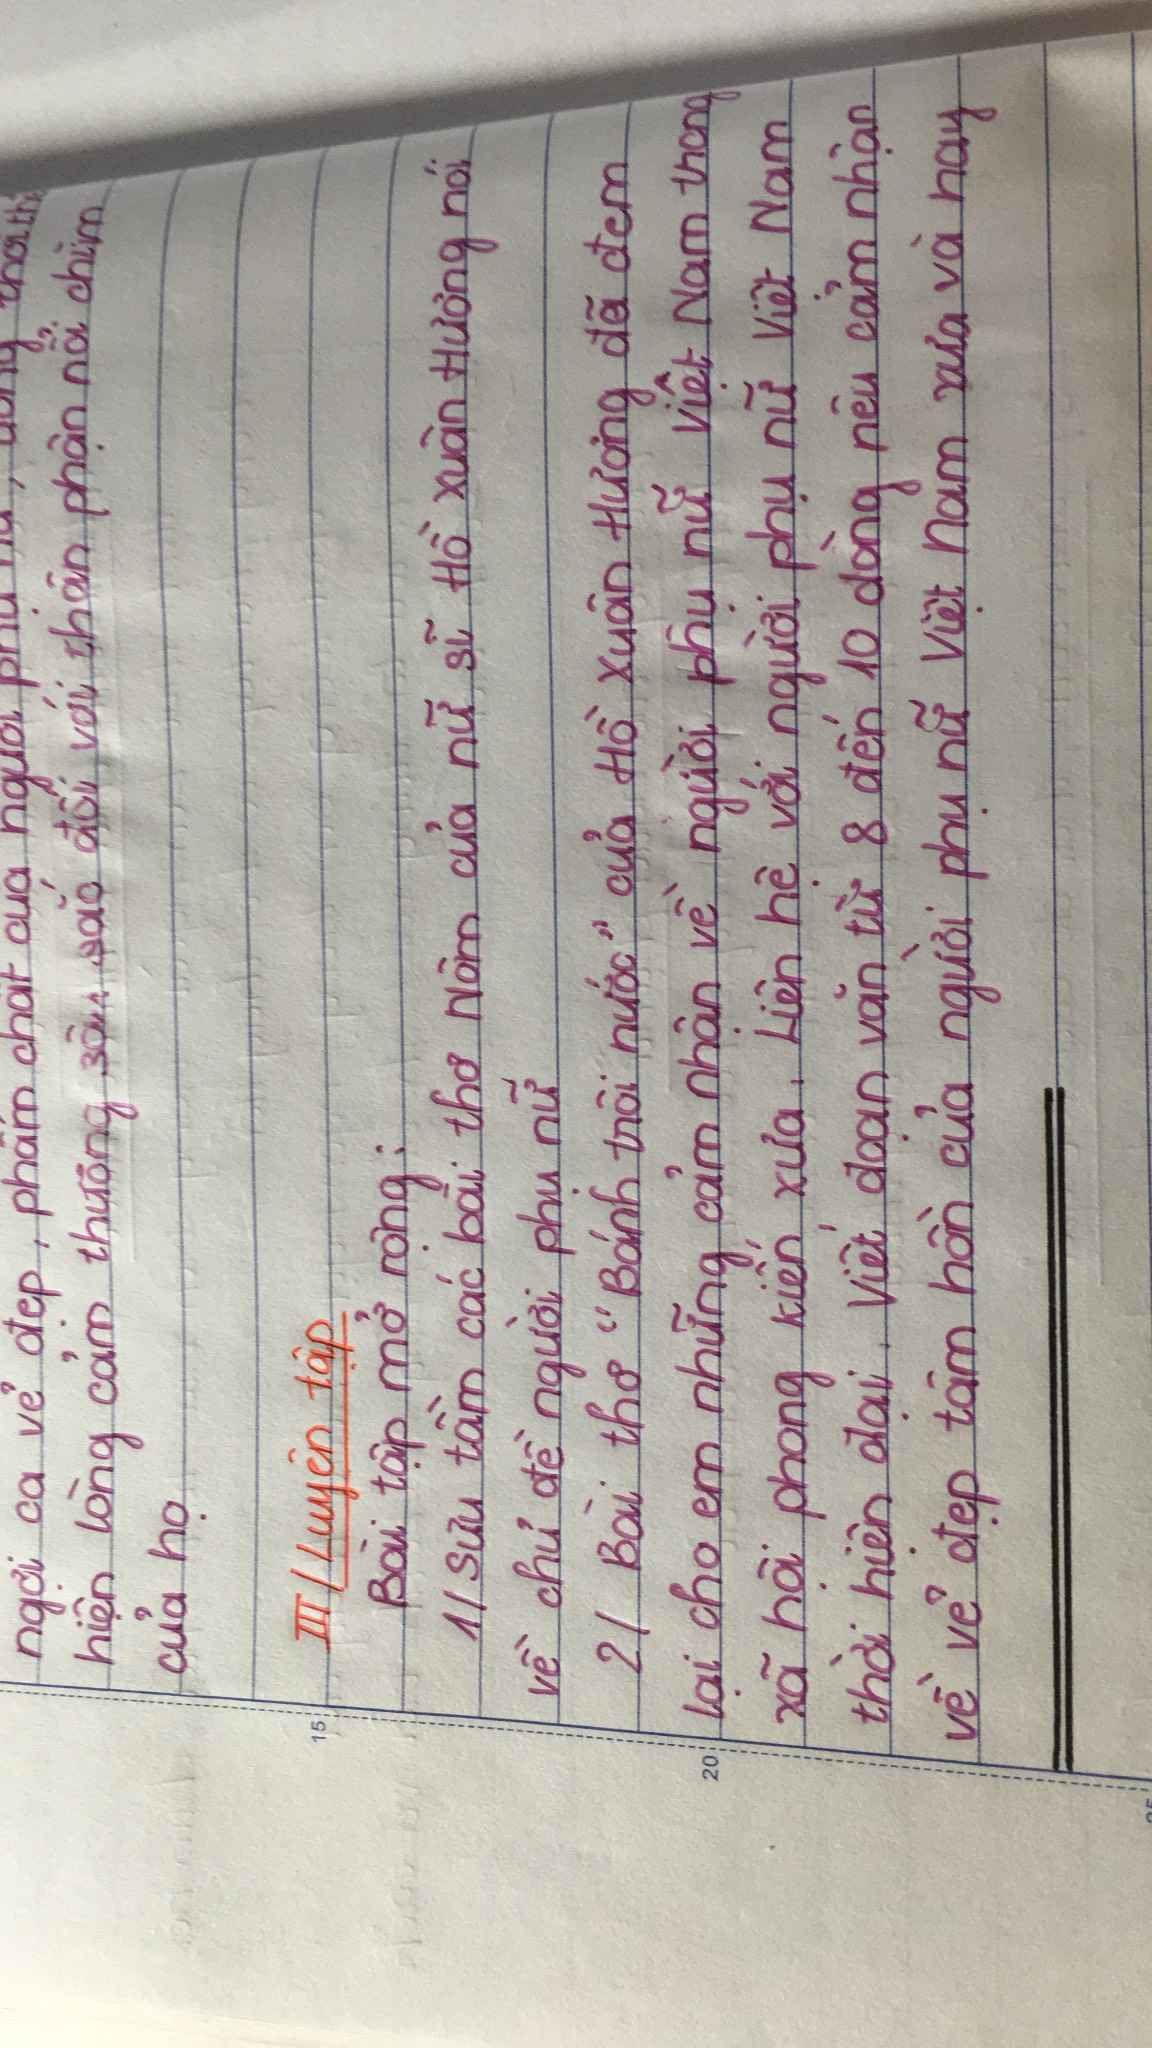 ngợi ca vẻ đẹp, phẩm chất của người phụ nữ,
hiện lòng cảm thương sâu sắc đối với thân phận nổi chìm
của họ
III/ Luyện tập
Bài tập mở rộng:
1/ Sưu tầm các bài thơ Nôm của nữ sĩ Hồ Xuân Hương nói
về chủ đề người phụ nữ
2/ Bài thơ "Bánh trôi nước" của Hồ Xuân Hương đã đem
lại cho em những cảm nhận về người phụ nữ Việt Nam trong
xã hội phong kiến xưa. Liên hệ với người phụ nữ Việt Nam
thời hiện đại. Viết đoạn văn từ 8 đến 10 dòng nêu cảm nhận
về vẻ đẹp tâm hồn của người phụ nữ Việt Nam xưa và nay
15
20